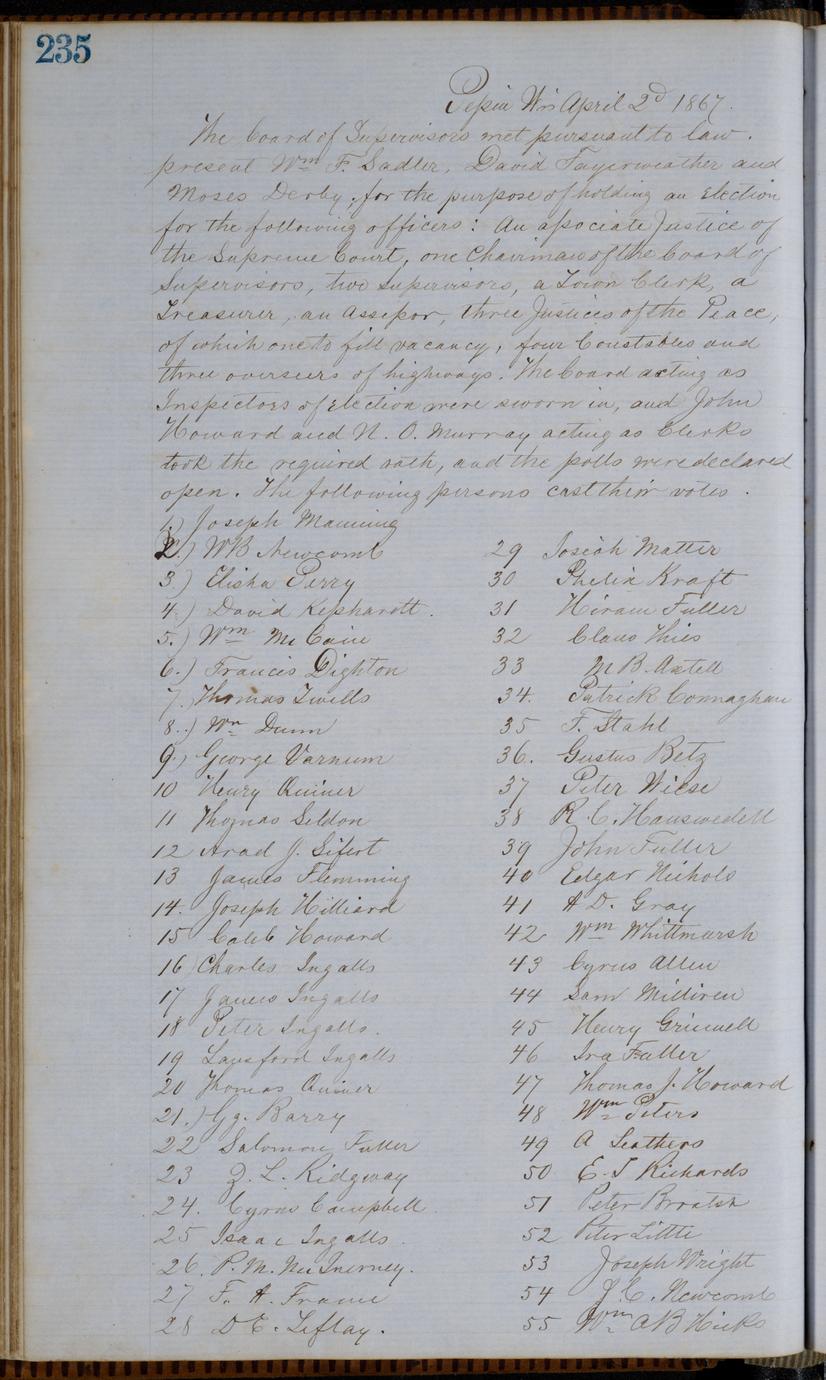 235
Pepin Wis April 2d 1867.
The board of Supervisors met pursuant to law.
present Wm F. Sadler, David Fayerweather and
Moses Derby, for the purpose of holding an Election
for the following officers: An associate Justice of
the Supreme Court, one Chairman of the board of
Supervisors, two supervisors, a Town Clerk, a
Treasurer, an Assessor, three Justices of the Peace,
of which one to fill vacancy, four Constables and
three overseers of highways. The board acting as
Inspectors of Election were sworn in, and John
Howard and N. O. Murray acting as Clerks
took the required oath, and the polls were declared
open. The following persons cast their votes.
1.) Joseph Manning
2.) WB Newcomb
3) Elisha Perry
4.) David Kephartt.
5.) Wm Mc Caine
6.) Francis Dighton
7.) Thomas Twells
8.) Wm Dunn
9.) George Varnum
10 Henry Quiner
11 Thomas Seldon
12 Arad J. Sifert
13 James Flemming
14. Joseph Hilliard
15 Caleb Howard
16) Charles Ingalls
17 James Ingalls
18 Peter Ingalls.
19 Lansford Ingalls
20 Thomas Quiner
21.) Gg. Barry
22 Salomon Fuller
23 Z. L. Ridgway
24. Cyrus Campbell.
25 Isaac Ingalls.
26. P. M. Mc Inerney.
27 F. A. Frame
28 D E. Leflay.
29 Josiah Matter
30 Phelix Kraft
31 Hiram Fuller
32 Claus Thies
33 M B. Axtell
34. Patrick Connaghan
35 F. Stahl
36. Gustus Betz
37 Peter Wiese
38 R C. Hauswedell
39 John Fuller
40 Edgar Nichols
41 A D. Gray
42 Wm Whittmarsh
43 Cyrus Allen
44 Sam Milliren
45 Henry Grinnell
46 Ira Fuller
47 Thomas J. Howard
48 Wm Peters
49 A Leathers
50 E. T Richards
51 Peter Broatsh
52 Peter Little
53 Joseph Wright
54 J. C. Newcomb
55 Wm AB Hicks